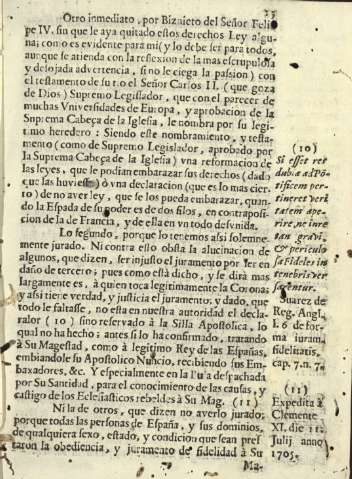 23
Otro inmediato, por Biznieto del Señor Feli-
pe IV. sin que le aya quitado estos derechos Ley algu-
na; como es evidente para mi (y lo debe ser para todos,
aunque se atienda con la reflexion de la mas escrupulosa
y desojada advertencia, si no le ciega la passion) con
el testamento de su tio el Señor Carlos II. (que goza
de Dios) Supremo Legislador, que con el parecer de
muchas Vniversidades de Europa, y aprobacion de la
Suprema Cabeça de la Iglesia, le nombra por su legi-
timo heredero: Siendo este nombramiento, y testa-
mento (como de Supremo Legislador, aprobado por
la Suprema Cabeça de la Iglesia) vna reformacion de
las leyes, que le podian embarazar sus derechos (dado
que las huviesse) ò vna declaracion (que es lo mas cier-
to) de no aver ley, que se los pueda embarazar, quan-
do la Espada de su poder es de dos filos, en contraposi-
cion de la de Francia, y de ella en vn todo desvnida.
Lo segundo, porque lo tenemos assi solemne-
mente jurado. Ni contra esto obsta la alucinacion de
algunos, que dizen, ser injusto el juramento por ser en
daño de tercero; pues como està dicho, y se dirà mas
largamente es, à quien toca legitimamente la Corona;
y assi tiene verdad, y justicia el juramento: y dado, que
todo le faltasse, no està en nuestra autoridad el decla-
ralor (10) sino reservado à la Silla Apostolica, lo
qual no ha hecho; antes si lo ha confirmado, tratando
à su Magestad, como à legitimo Rey de las Españas,
embiandole su Apostolico Nuncio, recibiendo sus Em-
baxadores, &c. Y especialmente en la Bula despachada
por Su Santidad, para el conocimiento de las causas, y
castigo de los Eclesiasticos rebeldes à Su Mag. (11)
Ni la de otros, que dizen no averlo jurado;
porque todas las personas de España, y sus dominios,
de qualquiera sexo, estado, y condicion que sean pres-
taron la obediencia, y juramento de fidelidad à Su
Ma-
(10)
Si esset red
dubia ad Põ
tificem per-
tineret veri
tatem ape-
rire, ne inre
tan gravi,
& periculosa
Fideles in
tenebris ver
sarentur.
Suarez de
Reg. Angl.
l. 6. de for-
ma iuram.
fidelitatis,
cap. 7. n. 7.
(11)
Expedita à
Clemente
XI. die 11.
Julij anno
1705.